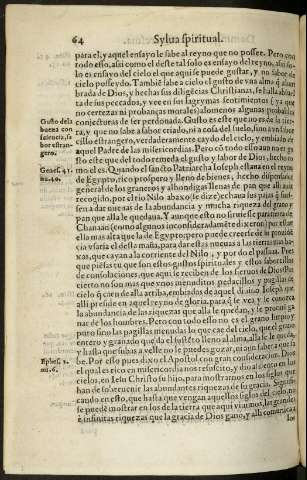 64 Sylua spiritual.
para el; y aquel ensayo le sabe al reyno que no possee. Pero con
todo esso, assi como el deste tal solo es ensayo del reyno, assi so-
lo es ensayo del cielo el que aqui se puede gustar, y no sabor de
cielo posseydo. Tambiē sabe a cielo el gusto de vna alma
brada de Dios, y hechas sus diligēcias Christianas, se halla
ta de sus peccados, y vee en sus lagrymas sentimientos (ya que
no certezas ni probanças morales) alomenos algunas probables
conjecturas de ser perdonada. Gusto es este que no es de la tie-
rra, y que no sabe a sabor criado, ni a cosa del suelo, sino a vn
Gusto dela
buena con
sciencia, sa
bor estran-
gero.
cissimo estrangero, verdaderamente caydo del cielo, y embiado de
aquel Padre de las misericordias. Pero cō todo esso aun no es
sto este que del todo remeda el gusto y labor de Dios, hecho
Genes. 41.
nu.49.
mo el es. Quando el sancto Patriarcha Ioseph estaua en el reyno
de Egypto, rico prospero y lleno de bienes, hecho dispensador
general de los graneros y alhondigas llenas de pan que alli auia
recogido, por el rio Nilo abaxo (se dize) echaua sus pajas
sen a dar nueuas de la abundancia y mucha riqueza de grano y
pan que alla le quedaua. Y aunque esto no siruiesse para tierra de
Chanaan (como algunos inconsideradamente dixeron) por estar
ella mas alta que la de Egypto; pero puede creerse de la prouidē-
cia varia el desta maña, para dar estas nueuas a las tierras mas ba-
xas, que cayan a la corriente del Nilo, y por do el passaua. Pues
que piēsas tu que son estos gustos spirituales y estos saborcillos
de consolaciones, que aqui se reciben de los sieruos de Dios? Por
cierto no son mas que vnos menuditos pedacillos y pagillas del
cielo q̄ caen de alla arriba, embiados de aquel diuino Ioseph, que
alli preside en aquel reyno de gloria, para q̄ se vea y se conozca
la abundancia de las riquezas que alla le quedan, y se prouoquen a ga-
nas de los hombres. Pero con todo esso no es el grano limpio y
puro sino las pagillas menudas las que cae del cielo, que el grano
entero y granado que da el sustēto lleno al alma, alla le queda,
y hasta que subas a velle no se puede gozar, ni aun
be. Por esso pues dixo el Apostol con gran consideracion, Dios
Ephes. 2.
nu.6.
el qual es rico en misericordia nos resuscito, y dio assiento en los
cielos, en Iesu Christo su hijo, para mostrarnos en los siglos que
han de sobreuenir las abundantes riquezas de su gracia. Signifi-
cando en esto, que hasta que vengan aquellos siglos del cielo, no
se puedē mostrar en los de la tierra que aqui viuimos, las grandes
è infinitas riquezas que la gracia de Dios gano, y alli comunica a
los